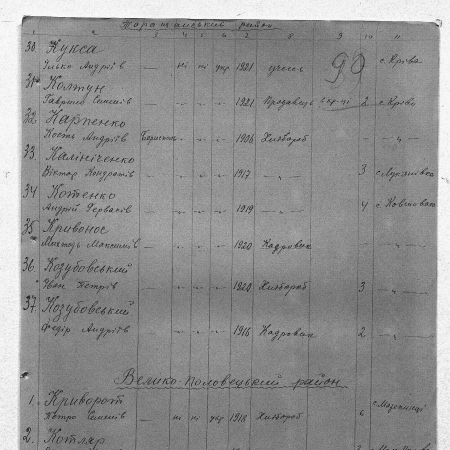 Таращанський район
1 2 3 4 5 6 7 8 9 10 11
30. Кукса
Улько Андріїв — ні ні укр 1921 учень 90 с. Крива
31. Колтун
Гаврило Симеїв — -„- -„- -„- 1921 Продавець 2 с. Крива
32. Карпенко
Кость Андріїв -„- -„- -„- 1906 Хлібороб — -„-
33. Калініченко
Віктор Кондратів — -„- -„- -„- 1917 — „ — 3 с. Лукянівка
34 Котенко
Андрій Гервасів — -„- -„- -„- 1919 — „ — 4
35 Кривонос
Максимів — -„- -„- -„- 1920 Кадровик — -„-
36. Козубовський
Іван Петрів — -„- -„- -„- 1920 Хлібороб 3 — -„-
37. Козубовський
Федір Андріїв — -„- -„- -„- 1916 Кадровик 2 — „ —
Велико-Половецький район
1. Криворот
Петро Симеїв — ні ні укр 1918 Хлібороб 6
2. Котляр